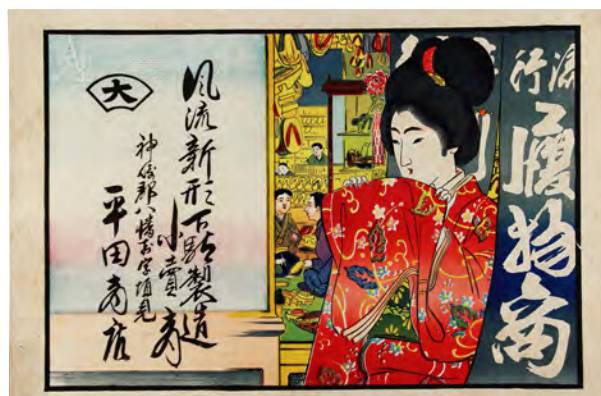 流行
履物商
風流新形下駄製造
小賣
神崎郡八幡
平田商店
大